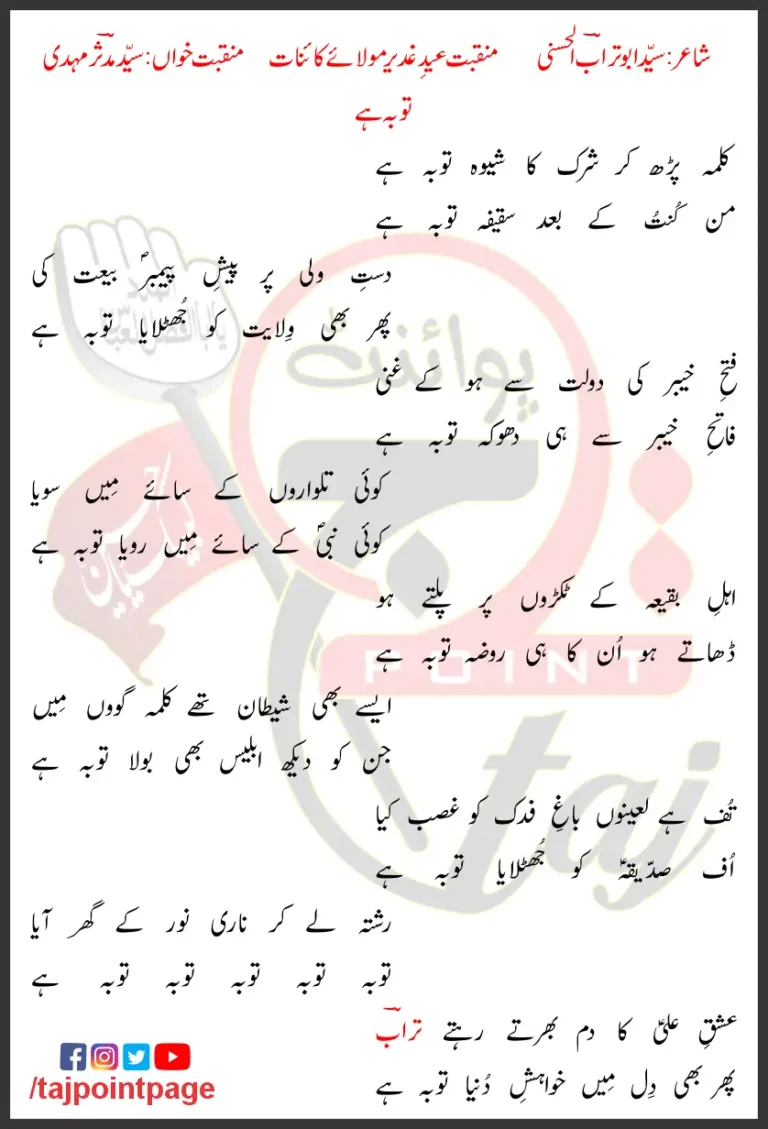 شاعر: سیّد ابو تراب الحسنی منقبت عیدِ غدیر مولائے کائنات منقبت خواں: سیّد مدثر مہدی
توبہ ہے
کلمہ پڑھ کر شرک کا شیوہ توبہ ہے
من کُنتُ کے بعد سقیفہ توبہ ہے
دستِ ولی پر پیشِ پیمبرؐ بیعت کی
پھر بھی وِلایت کو جُھٹلایا توبہ ہے
فتحِ خیبر کی دولت سے ہو کے غنی
فاتحِ خیبر سے ہی دھوکہ توبہ ہے
کوئی تلواروں کے سائے مِیں سویا
کوئی نبیؐ کے سائے مِیں رویا توبہ ہے
اہلِ بقیعہ کے ٹکڑوں پر پلتے ہو
ڈھاتے ہو اُن کا ہی روضہ توبہ ہے
ایسے بھی شیطان تھے کلمہ گووں مِیں
جن کو دیکھ ابلیس بھی بولا توبہ ہے
تُف ہے لعینوں باغِ فدک کو غصب کیا
اُف صدّیقہؑ کو جُھٹلایا توبہ ہے
رشتہ لے کر ناری نور کے گھر آیا
توبہ توبہ توبہ توبہ توبہ ہے
عشقِ علیؑ کا دم بھرتے رہتے ترابؔ
پھر بھی دِل مِیں خواہشِ دُنیا توبہ ہے
/tajpointpage
پوائنٹ
تاج
POINT
taj